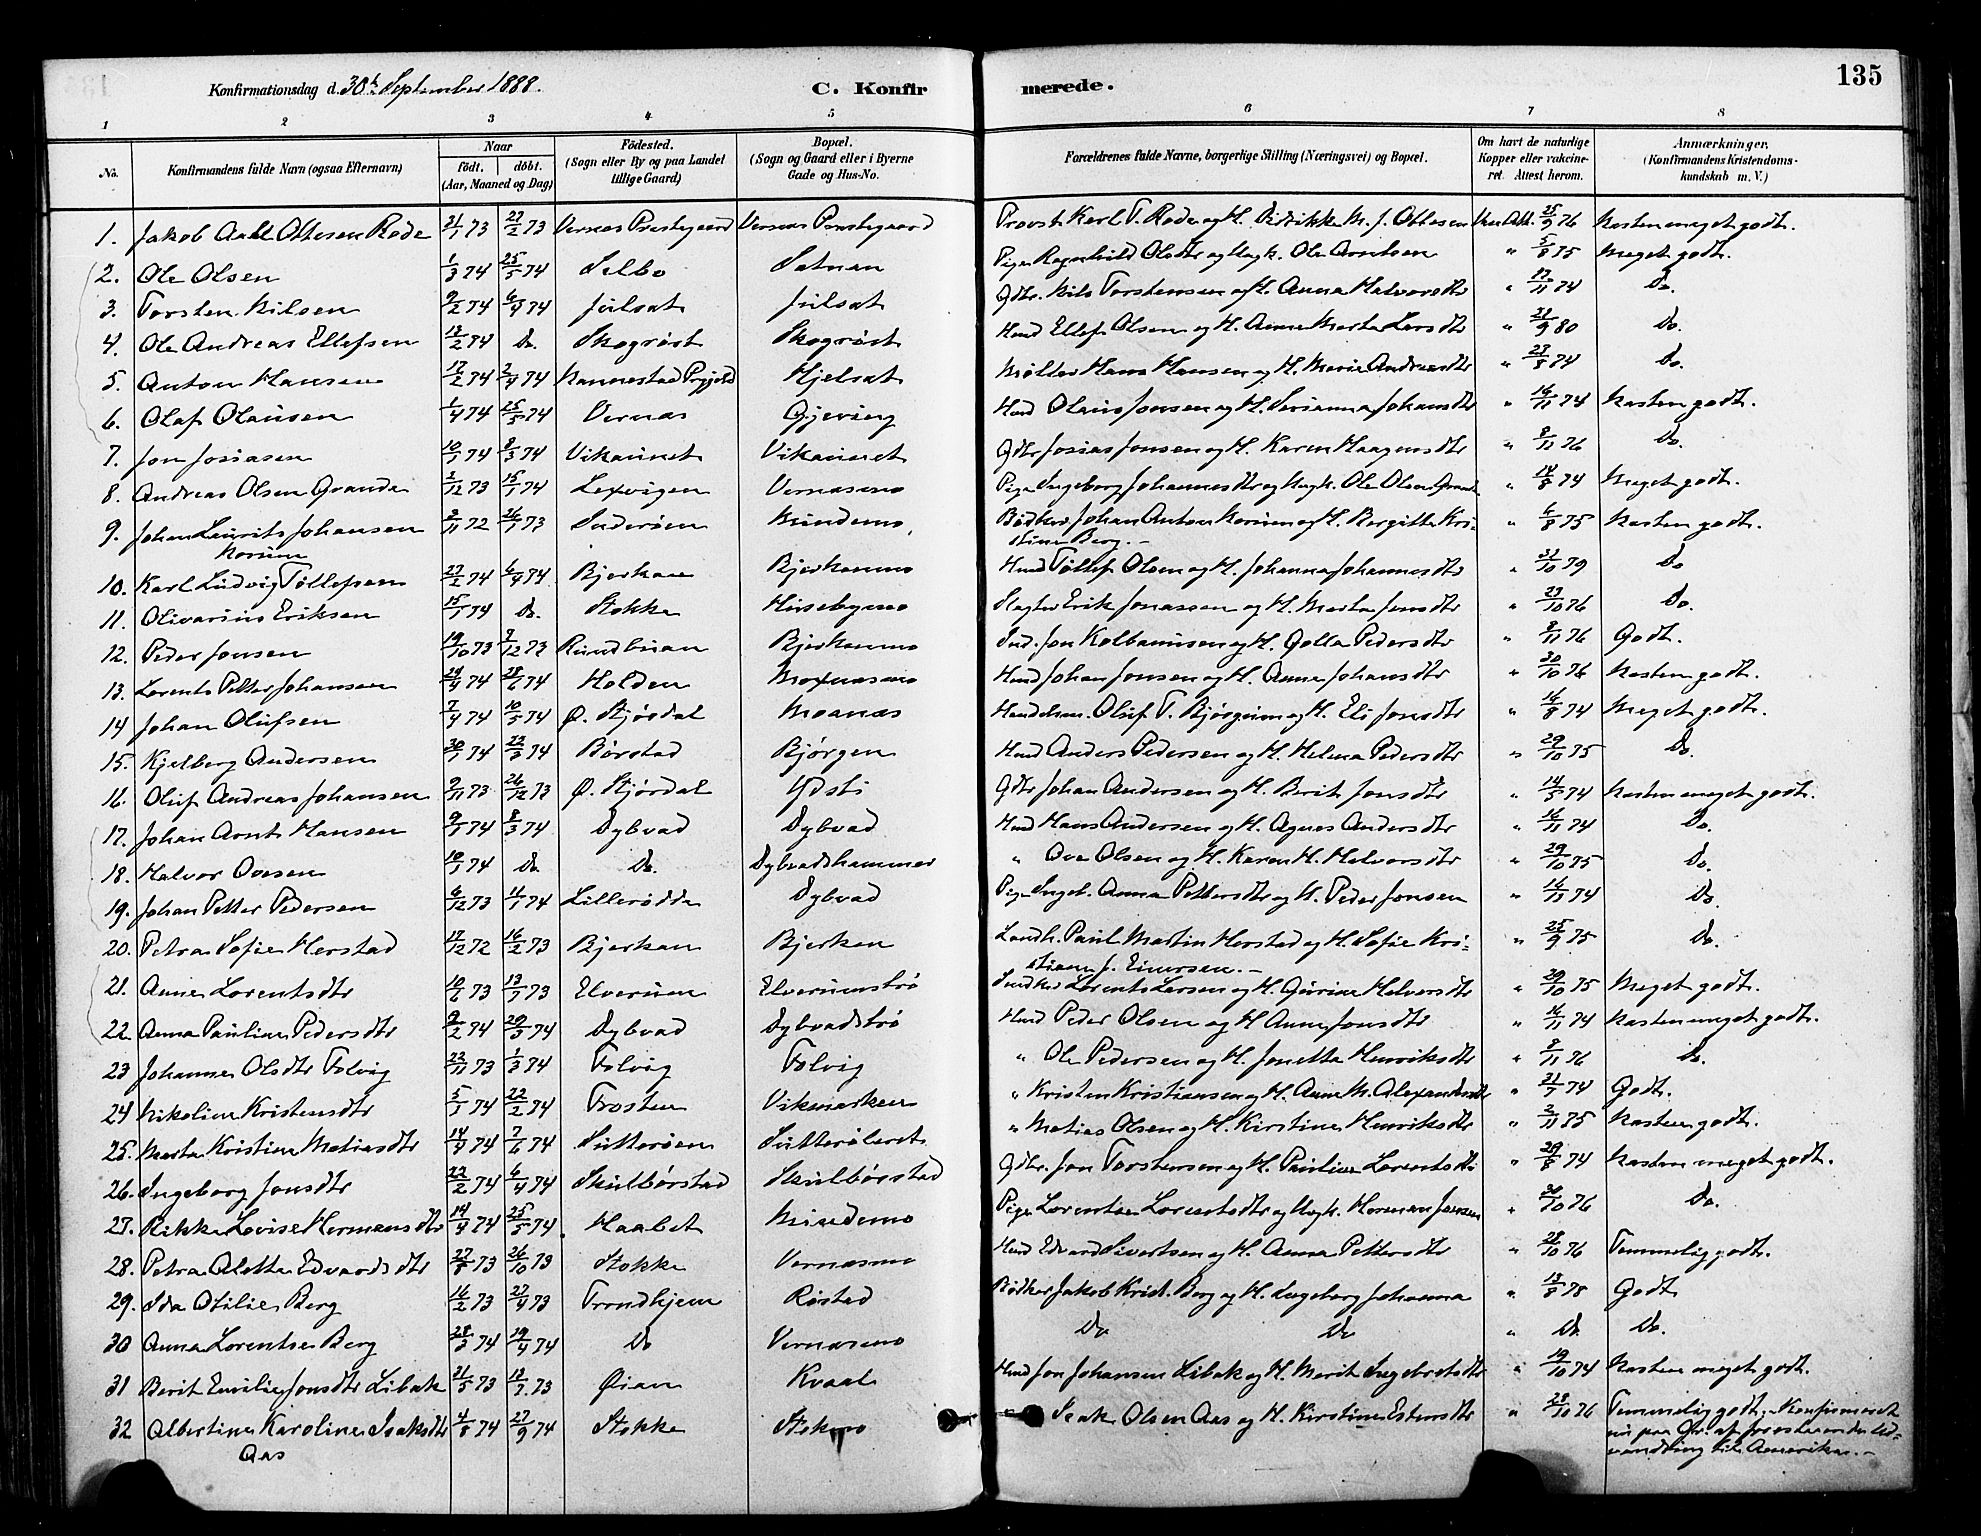 Konfirmationsdag d. 30te September 1888.
C. Konfirmerede.
135
1 2 3 4 5 6 7 8
No. Konfirmandens fulde Navn (ogsaa Efternavn) Naar født. døbt. (Aar, Maaned og Dag) Födested. (Sogn eller By og paa Landet tillige Gaard) Bopæl. (Sogn og Gaard eller i Byerne Gade og Hus-No. Forældrenes fulde Navne, borgerlige Stilling (Næringsvei) og Bopæl. Om havt de naturlige Kopper eller vaccineret. Attest herom. Anmærkninger. (Konfirmandens Kristendomskundskab m. V.)
1. Jakob Aall Ottesen Rode 31/1 73 27/2 73 Vernes Prestegaard Vernes Prestegaard Provst Karl T. Rode og H. Didrikke M. J. Ottesen Vac. Att. 25/9 76 Næsten meget godt.
2. Ole Olsen 1/3 74 25/5 74 Selbo Satnan Pige Ragnhild Olsdtr og Ungk. Ole Arntsen " 5/8 75 Meget godt.
3. Torsten Nilsen 9/2 74 6/4 74 Julsat Julsat Gdbr. Nils Torstensen og H. Anna Halvorsdtr " 17/11 74 Do.
4. Ole Andreas Ellefsen 13/2 74 Do. Skogrøst Skogrøst Hmd Ellef Olsen og H. Anne Marta Larsdtr " 21/9 80 Do.
5. Anton Hansen 17/2 74 2/4 74 Nannestad Prgjeld Hjelsat Møller Hans Hansen og H. Maria Andreasdtr " 23/8 74 Do.
6. Olaf Olausen 1/4 74 25/5 74 Vernes Gjeving Hmd Olaus Jonsen og H. Serianna Johansdtr " 16/11 74 Næsten godt.
7. Jon Josiasen 10/1 74 8/3 74 Vikaunet Vikaunet Gdbr Josias Jonsen og H. Karen Haagensdtr " 8/11 76 Do.
8. Andreas Olsen Grande 3/12 73 15/1 74 Lexvigen Vernesmo Pige Ingeborg Johannesdtr og Ungk. Ole Olsen Grande " 18/8 74 Meget godt.
9. Johan Laurits Johansen 2/11 72 26/1 73 Inderøen Mindemo Bødker Johan Anton Norum og H. Bergitte Kri- " 6/8 75 Næsten godt.
Norum stine Berg.-
10. Karl Ludvig Tøllefsen 27/2 74 6/4 74 Bjerkan Bjerkanmo Hmd Tøllef Olsen og H. Johanna Johannesdtr " 31/10 79 Do
11. Olivarius Eriksen 15/1 74 Do. Stokke Husebymo Slagter Erik Jonassen og H. Marta Jonsdtr " 23/10 76 Do.
12. Peder Jonsen 19/10 73 7/12 73 Bjerkanmo Ind. Jon Kolbanusen og H. Golla Pedersdtr " 8/11 76 Godt.
13. Lorents Petter Johansen 24/4 74 28/6 74 Holden Moxnesmo Hmd Johan Jonsen og H. Anna Johansdtr " 30/10 76 Næsten godt.
14 Johan Olufsen 7/4 74 10/5 74 Ø. Stjørdal Moanes Handelsm. Oluf T. Bjørgum og H. Eli Jonsdtr " 16/8 74 Meget godt.
15. Kjelberg Andersen 30/1 74 22/3 74 Børstad Bjørgen Hmd Anders Pedersen og H. Helena Pedersdtr " 29/10 75 Do.
16. Oluf Andreas Johansen 9/11 73 26/12 73 Ø. Stjørdal Ydsti Gdbr Johan Andersen og H. Berit Jonsdtr " 14/5 74 Næsten meget godt.
17. Johan Arnt Hansen 9/1 74 8/3 74 Dybvad Dybvad Hmd Hans Andersen og H. Agnes Andersdtr " 16/11 74 Do.
18. Halvor Ovesen 10/1 74 Do. Do. Dybvadshammer " Ove Olsen og H. Karen H. Halvorsdtr " 29/10 75 Do.
19. Johan Petter Pedersen 6/12 73 11/1 74 Lillerødde Dybvad Pige Ingeb. Anna Pettersdtr og H. Peder Jonsen " 16/11 74 Do.
20. Petra Sofie Herstad 17/12 72 16/2 73 Bjerkan Bjerkan Landh. Paul Martin Herstad og H. Sofie Kri- " 25/9 75 Do.
stiane J. Einersen.-
21. Anne Lorentsdtr 10/6 73 13/7 73 Elverum Elverumstrø Lorents Larsen og H. Gurine Halvorsdtr " 29/10 75 Meget godt.
22 Anna Pauline Pedersdtr 9/2 74 29/3 74 Dybvad Dybvadstrø Hmd Peder Olsen og H Anne Jonsdtr " 16/11 74 Næsten meget godt.
23 Johanne Olsdtr Folvig 22/11 73 1/3 74 Folvig Folvig " Ole Pedersen og H. Jonetta Henriksdtr " 8/11 76 Do.
24 Nikoline Kristensdtr 5/1 74 22/2 74 Frosten Vikmarken " Kristen Kristiansen og H. Anne M. Alexandersdtr " 21/7 74 Godt.
25. Marta Kristine Matiasdtr 14/4 74 7/6 74 Sutterøen Sutterøleret " Matias Olsen og H. Kirstine Henriksdtr " 2/11 85 Næsten godt.
26. Ingeborg Jonsdtr 22/2 74 6/4 74 Skulbørstad Skulbørstad Gdbr. Jon Torstensen og H. Pauline Lorentsdtr " 29/8 74 Næsten meget godt.
27. Rikke Lovise Hermansdtr 14/4 74 25/5 74 Haabet Mindemo Pige Lorentse Lorentsdtr og Ungk. Herman Jensen " 30/10 76 Do.
28. Petra Aletta Edvardsdtr 27/8 73 26/10 73 Stokke Vernesmo Hmd Edvard Sivertsen og H. Anna Pettersdtr " 28/10 76 Temmelig godt.
29. Ida Otilie Berg 16/2 73 27/4 73 Trondhjem Røstad Bødker Jakob Krist. Berg og H. Ingeborg Johanna " 13/8 78 Godt
30 Anna Lorentse Berg 28/3 74 19/4 74 Do Vernesmo Do Do " Do Do.
31 Berit Emilie Jonsdtr Libak 31/5 73 13/7 73 Øian Kvaal Hmd Jon Johansen Libak og H. Marit Ingebretsdtr " 19/10 74 Næsten meget godt.
32 Albertine Karoline Isaksdtr 4/8 74 27/9 74 Stokke Stokmo " Isak Olsen Aas og H. Kirstine Estensdtr " 28/10 76 Temmelig godt. Konfirmeret
Aas nu paa Gr. af forestaaende Ud-
vandring til Amerika.-